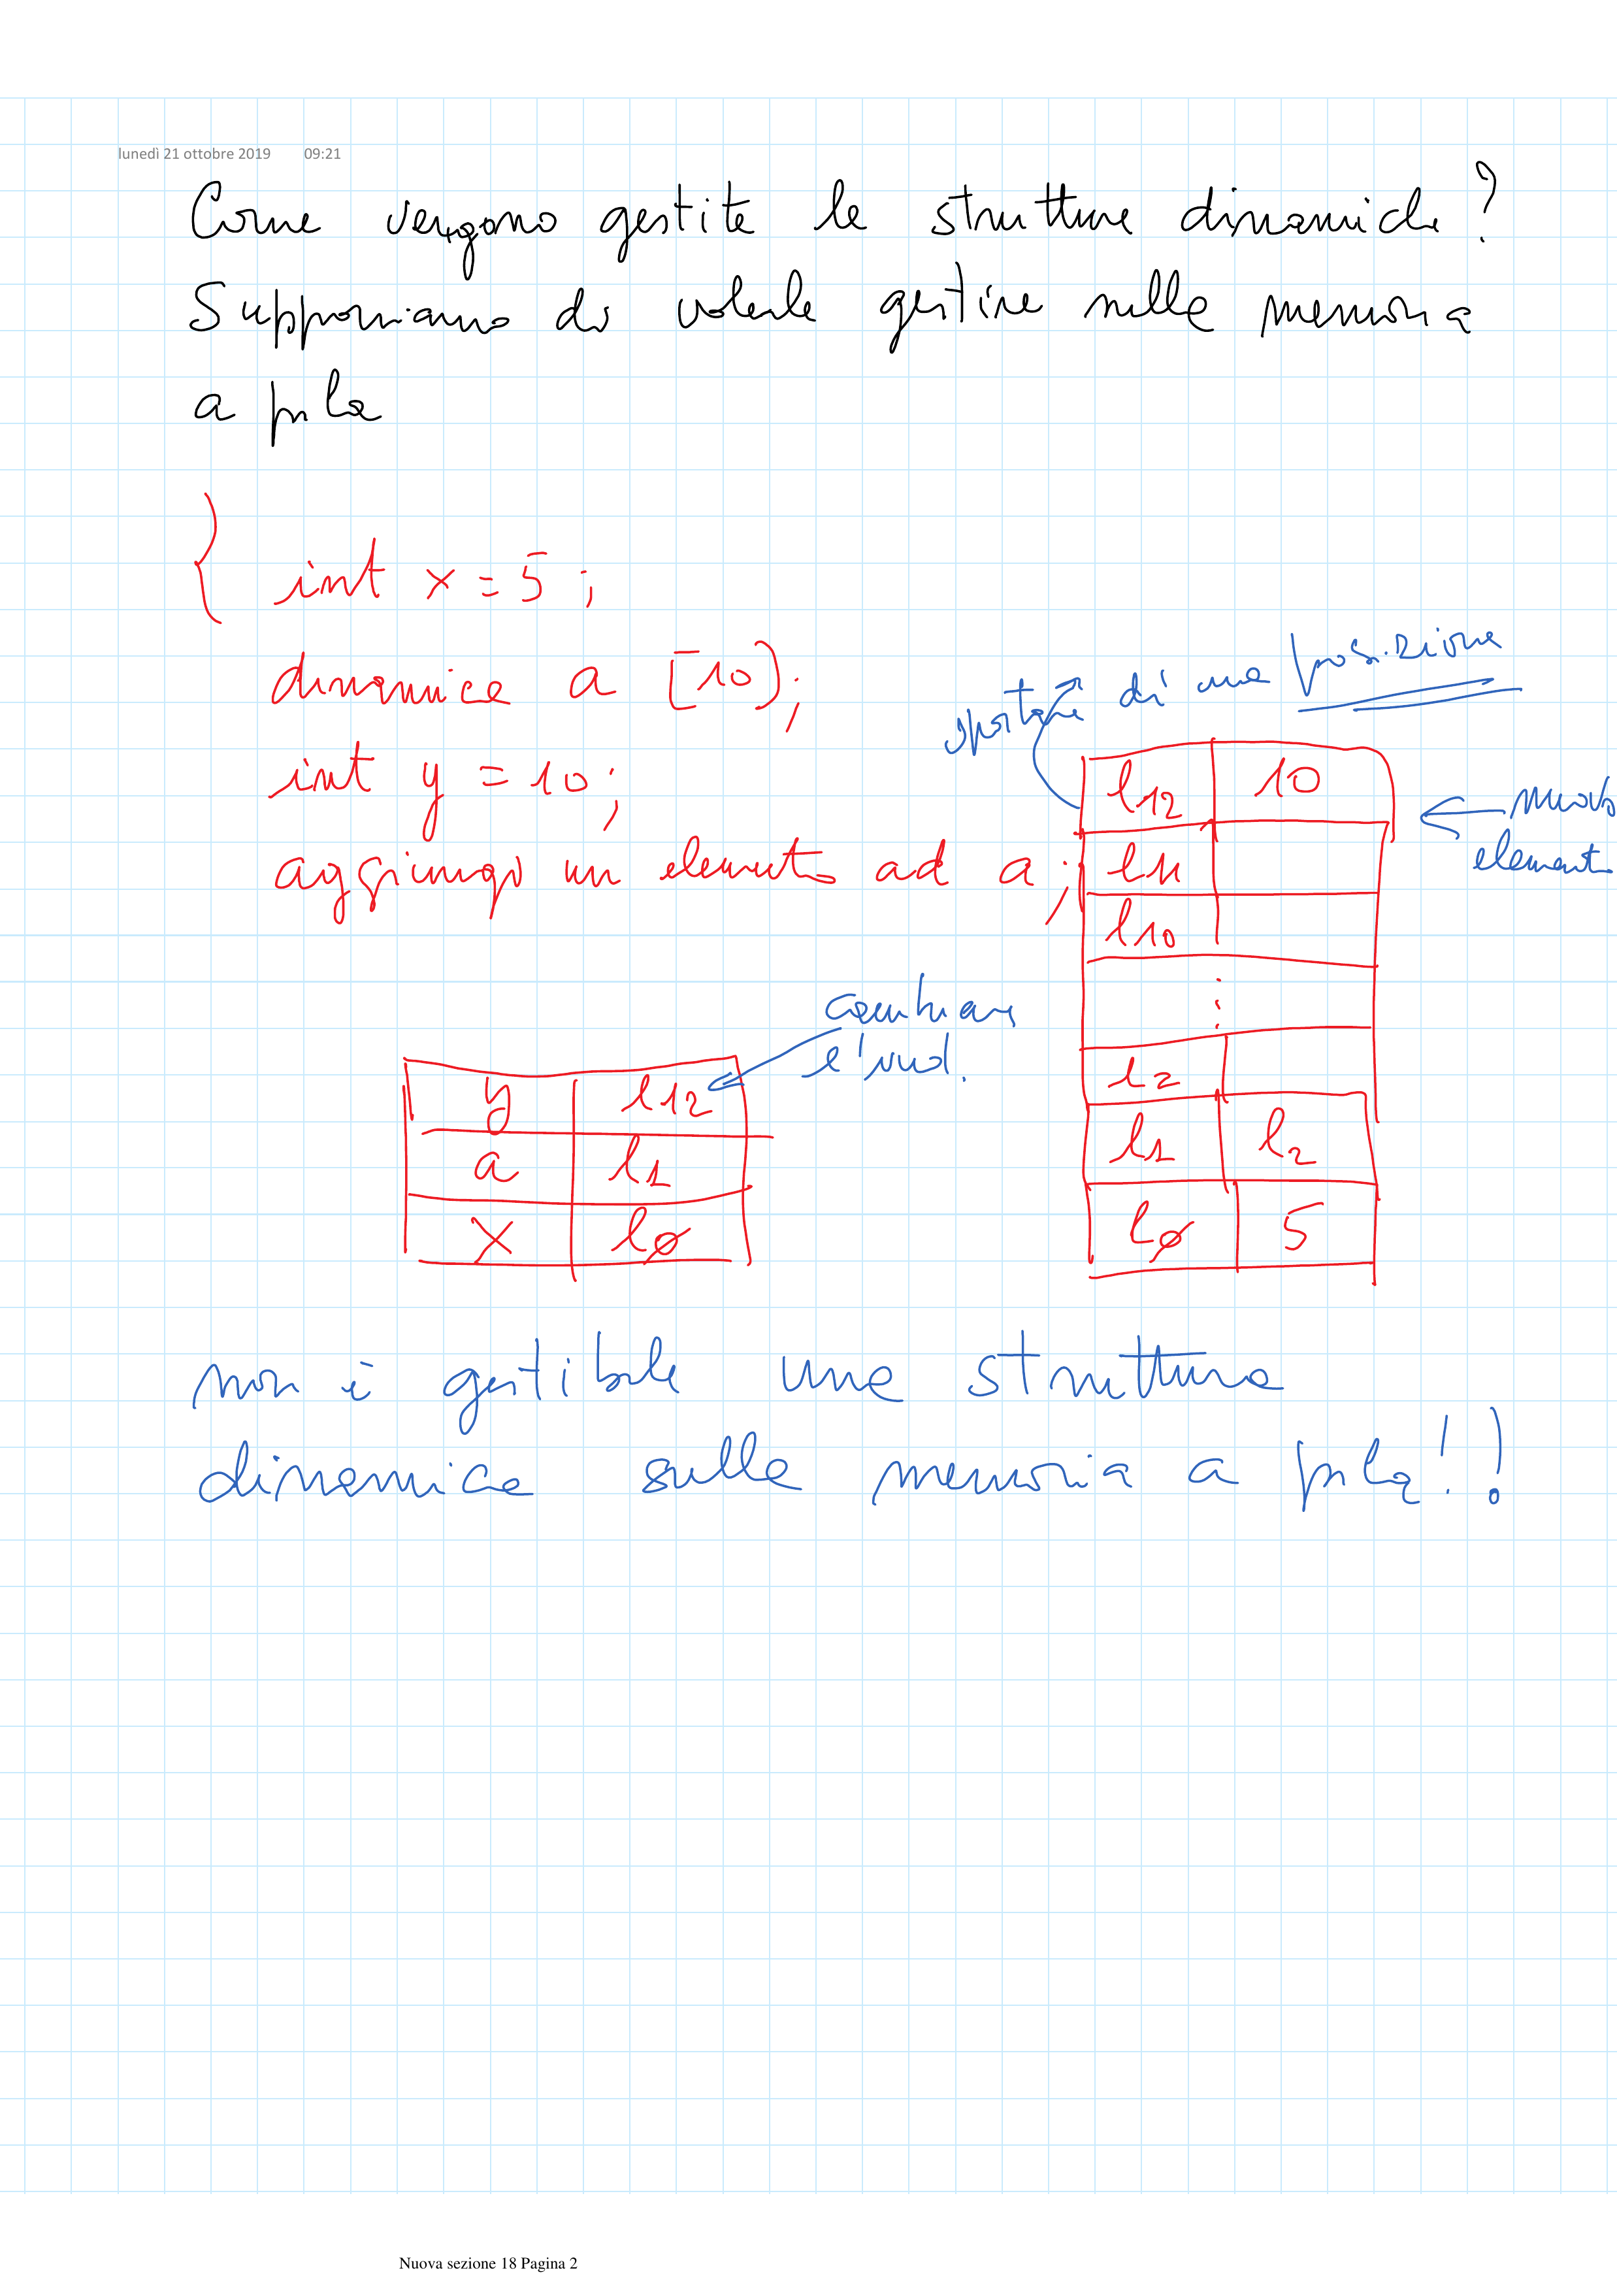 lunedì 21 ottobre 2019 09:21
Come vengono gestite le strutture dinamiche?
Supponiamo di volerle gestire sulla memoria
a pila
{ int x = 5;
dinamica a [10];
int y = 10;
aggiungo un elemento ad a;
spostare di una posizione
l12 10
← nuovo
elemento
l11
l10
⋮
l2
l1 l2
l0 5
cambiare
l'ind.
y l12
a l1
x l0
non è gestibile una struttura
dinamica sulla memoria a pila!!
Nuova sezione 18 Pagina 2